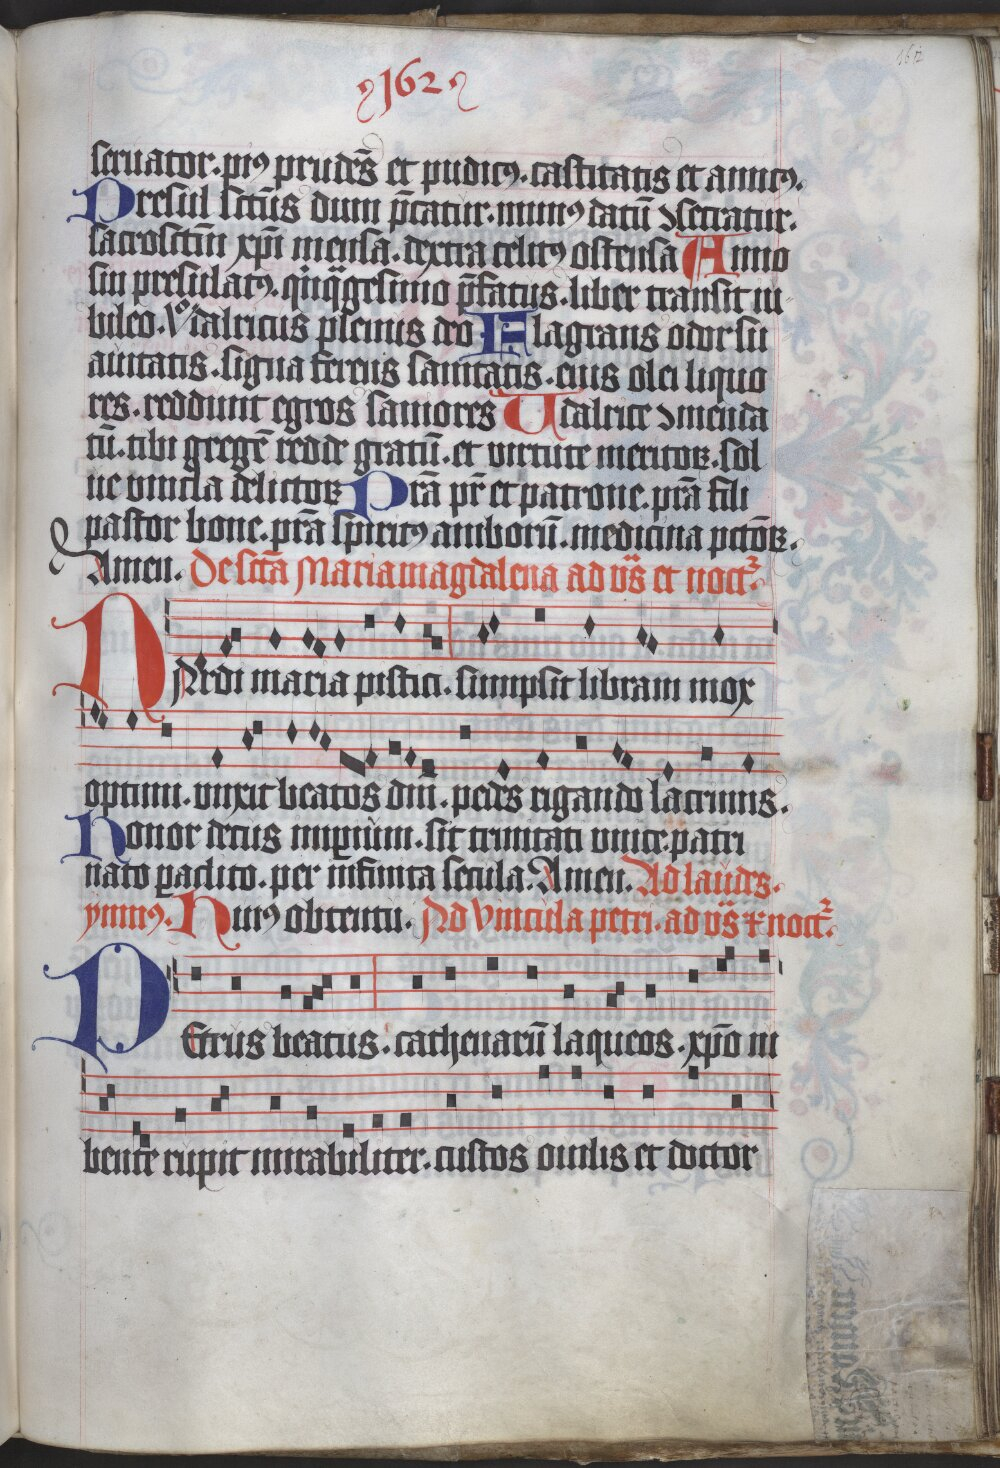 162
162
seruator. piꝰ prudēs et pudicꝰ. castitatis et amicꝰ.
Presul sctūs dum p̄catur. munꝰ datū ɔsecratur.
sacrosctm̄ xp̄i mensa. dextra celitꝰ ostensa Anno
sui presulatꝰ. quīqͣgesimo p̄fatus. liber transit iu
bileo. Vͦdalricus plenus deo Flagrans odor su
auitatis. signa ferens sanitatis. eius olei liquo
res. reddunt egros saniores Udalrice ɔmenda
tū. tibi gregē redde gratū. et virtute meritoꝝ. sol
ue vincla delictoꝝ Prā pr̄ et patrone. prā fili
pastor bone. prā spiritꝰ amborū. medicina pctōꝝ.
Amen. De sctā Maria magdalena ad vs̄ et noctꝛ
NArdi maria pistici. sumpsit libram mox
optimi. vnxit beatos dnī. pedes rigando lacrimis.
Honor decus imꝑium. sit trinitati vnice. patri
nato ꝑaclito. per infinita secula. Amen. Ad laudes.
ymnꝰ. Huiꝰ obtentu. Ad Vincula petri. ad vs̄ ⁊ noctꝛ.
PEtrus beatus. cathenarū laqueos. xpō iu
bente rupit mirabiliter. custos ouilis et doctor